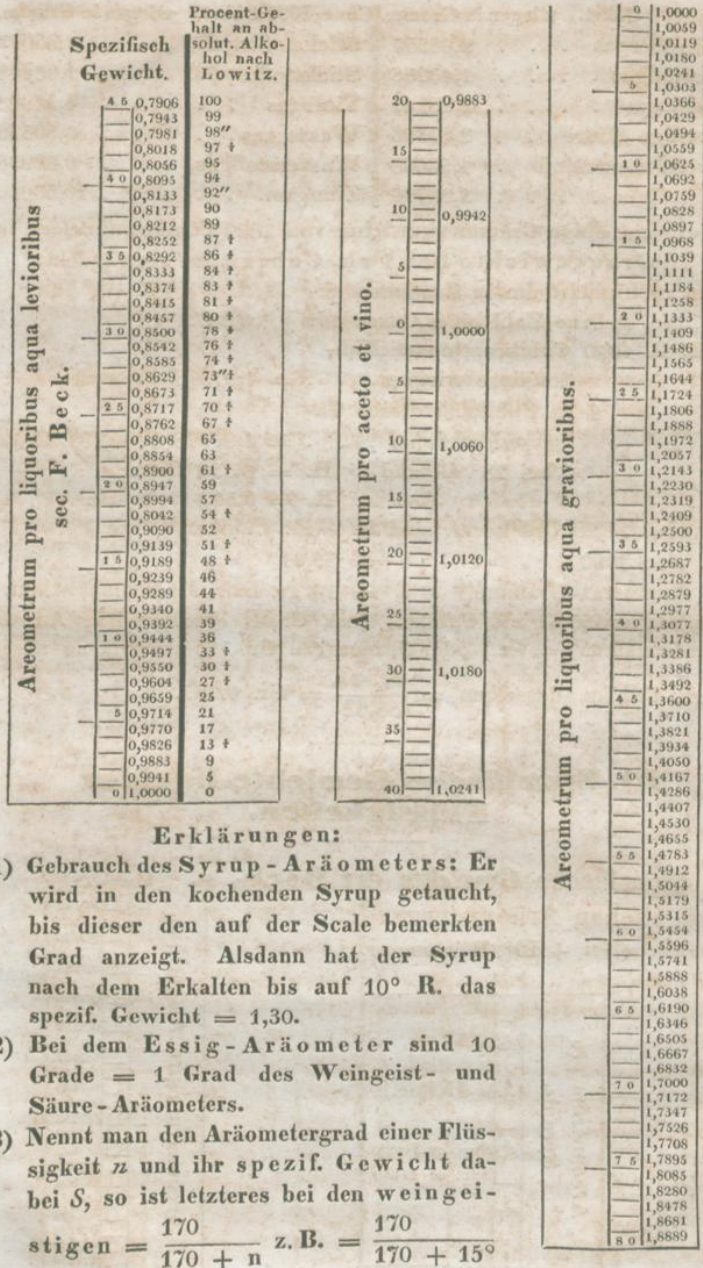 Areometrum pro liquoribus aqua levioribus
sec. F. Beck.
Spezifisch
Gewicht.
Procent-Ge-
halt an ab-
solut. Alko-
hol nach
Lowitz.
45 0,7906 100
0,7943 99
0,7981 98″
0,8018 97 †
0,8056 95
40 0,8095 94
0,8133 92″
0,8173 90
0,8212 89
0,8252 87 †
35 0,8292 86 †
0,8333 84 †
0,8374 83 †
0,8415 81 †
0,8457 80 †
30 0,8500 78 †
0,8542 76 †
0,8585 74 †
0,8629 73″†
0,8673 71 †
25 0,8717 70 †
0,8762 67 †
0,8808 65
0,8854 63
0,8900 61 †
20 0,8947 59
0,8994 57
0,8042 54 †
0,9090 52
0,9139 51 †
15 0,9189 48 †
0,9239 46
0,9289 44
0,9340 41
0,9392 39
10 0,9444 36
0,9497 33 †
0,9550 30 †
0,9604 27 †
0,9659 25
5 0,9714 21
0,9770 17
0,9826 13 †
0,9883 9
0,9941 5
0 1,0000 0
Areometrum pro aceto et vino.
20 0,9883
15
10 0,9942
5
0 1,0000
5
10 1,0060
15
20 1,0120
25
30 1,0180
35
40 1,0241
Areometrum pro liquoribus aqua gravioribus.
0 1,0000
1,0059
1,0119
1,0180
1,0241
5 1,0303
1,0366
1,0429
1,0494
1,0559
10 1,0625
1,0692
1,0759
1,0828
1,0897
15 1,0968
1,1039
1,1111
1,1184
1,1258
20 1,1333
1,1409
1,1486
1,1565
1,1644
25 1,1724
1,1806
1,1888
1,1972
1,2057
30 1,2143
1,2230
1,2319
1,2409
1,2500
35 1,2593
1,2687
1,2782
1,2879
1,2977
40 1,3077
1,3178
1,3281
1,3386
1,3492
45 1,3600
1,3710
1,3821
1,3934
1,4050
50 1,4167
1,4286
1,4407
1,4530
1,4655
55 1,4783
1,4912
1,5044
1,5179
1,5315
60 1,5454
1,5596
1,5741
1,5888
1,6038
65 1,6190
1,6346
1,6505
1,6667
1,6832
70 1,7000
1,7172
1,7347
1,7526
1,7708
75 1,7895
1,8085
1,8280
1,8478
1,8681
80 1,8889
Erklärungen:
) Gebrauch des Syrup-Aräometers: Er
wird in den kochenden Syrup getaucht,
bis dieser den auf der Scale bemerkten
Grad anzeigt. Alsdann hat der Syrup
nach dem Erkalten bis auf 10° R. das
spezif. Gewicht = 1,30.
2) Bei dem Essig-Aräometer sind 10
Grade = 1 Grad des Weingeist- und
Säure-Aräometers.
3) Nennt man den Aräometergrad einer Flüs-
sigkeit n und ihr spezif. Gewicht da-
bei S, so ist letzteres bei den weingei-
stigen = 170 / 170 + n z. B. = 170 / 170 + 15°